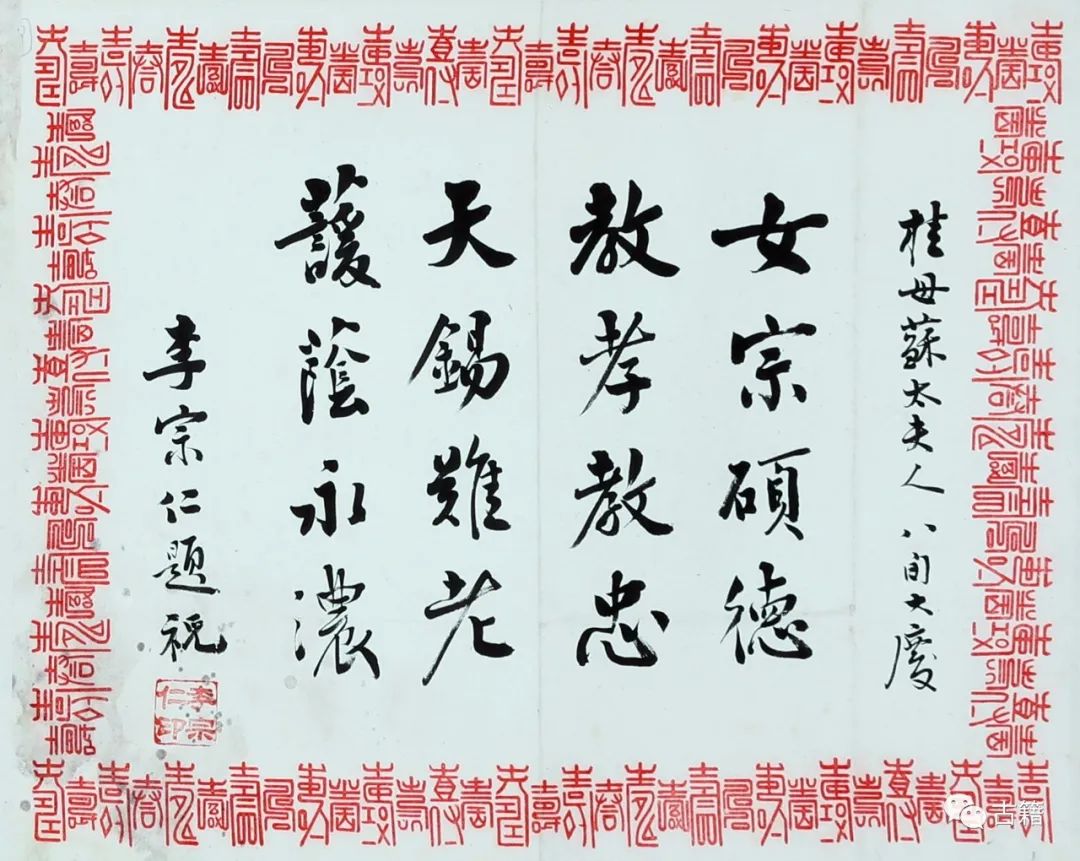 桂母蘇太夫人八旬大慶
女宗碩德
教孝教忠
天錫難老
蘐蔭永濃
李宗仁題祝
李宗
仁印
古籍